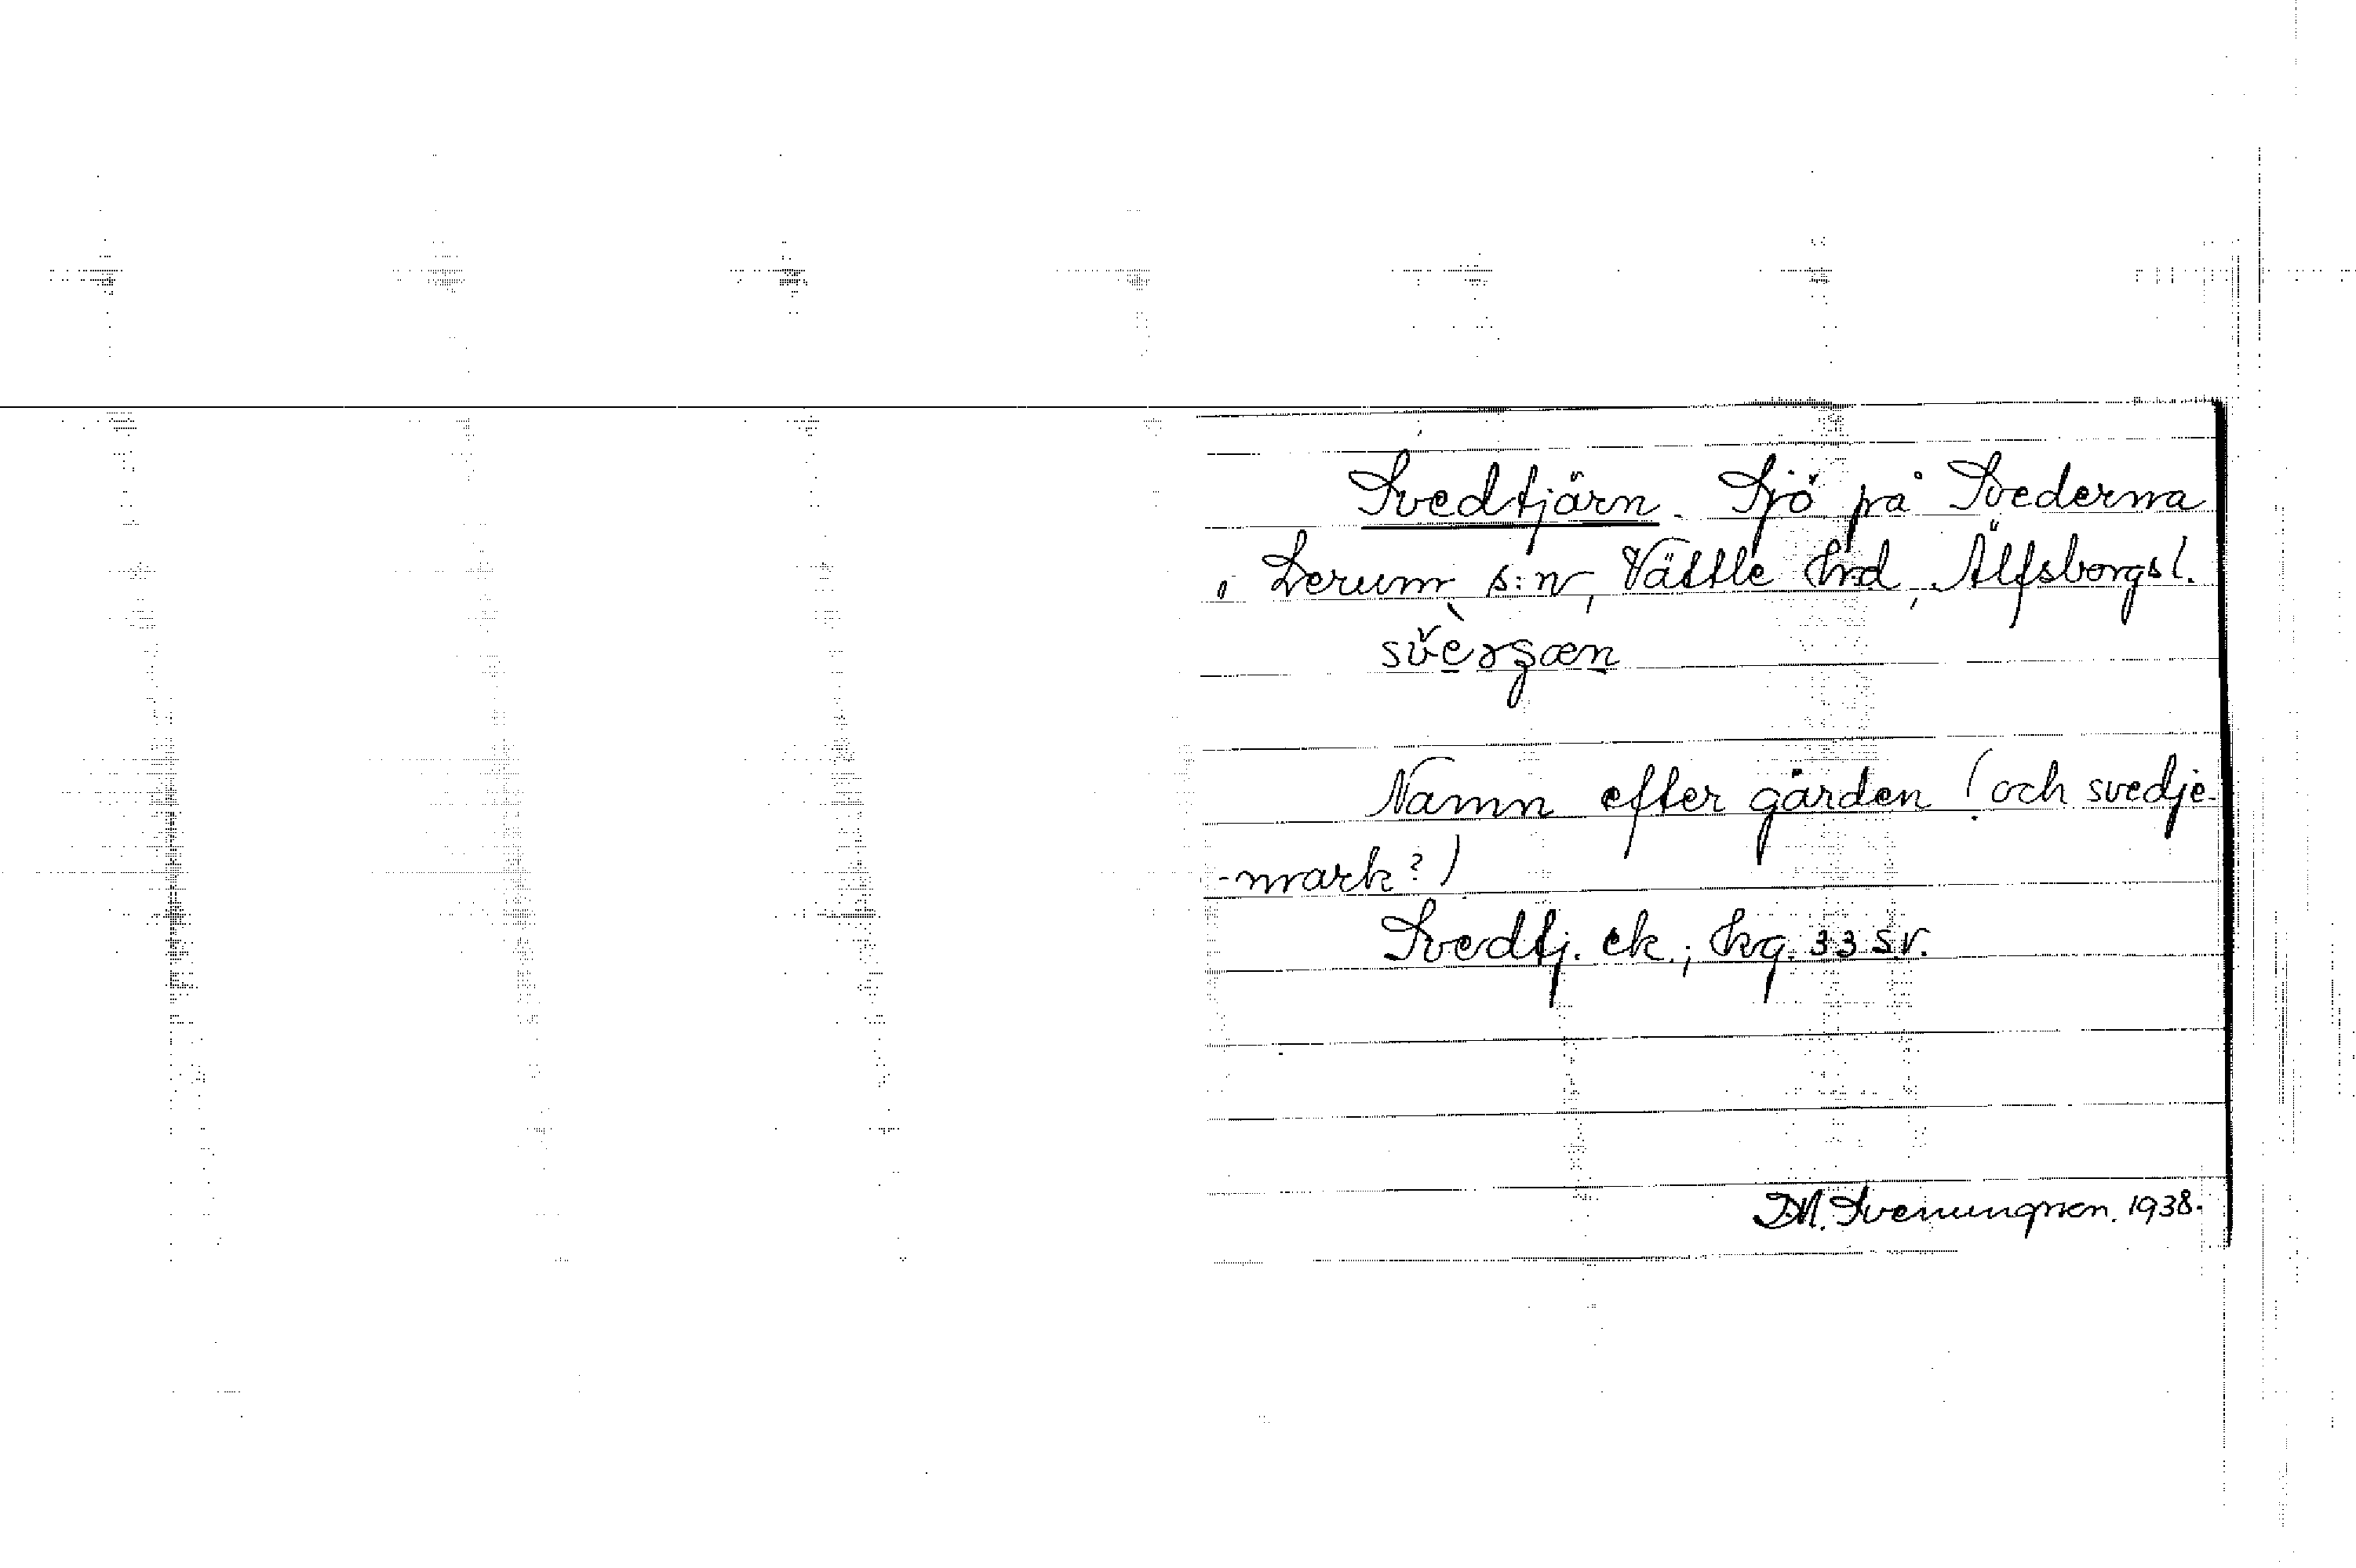 Svedtjärn. Sjö på Svederna
i Lerum s:n, Vättle hrd, Älfsborgs l.
Namn efter gården (och svedje-
-mark?)
Svedtj. ek.; hg. 33 sv.
D.M. Svenungsson. 1938.